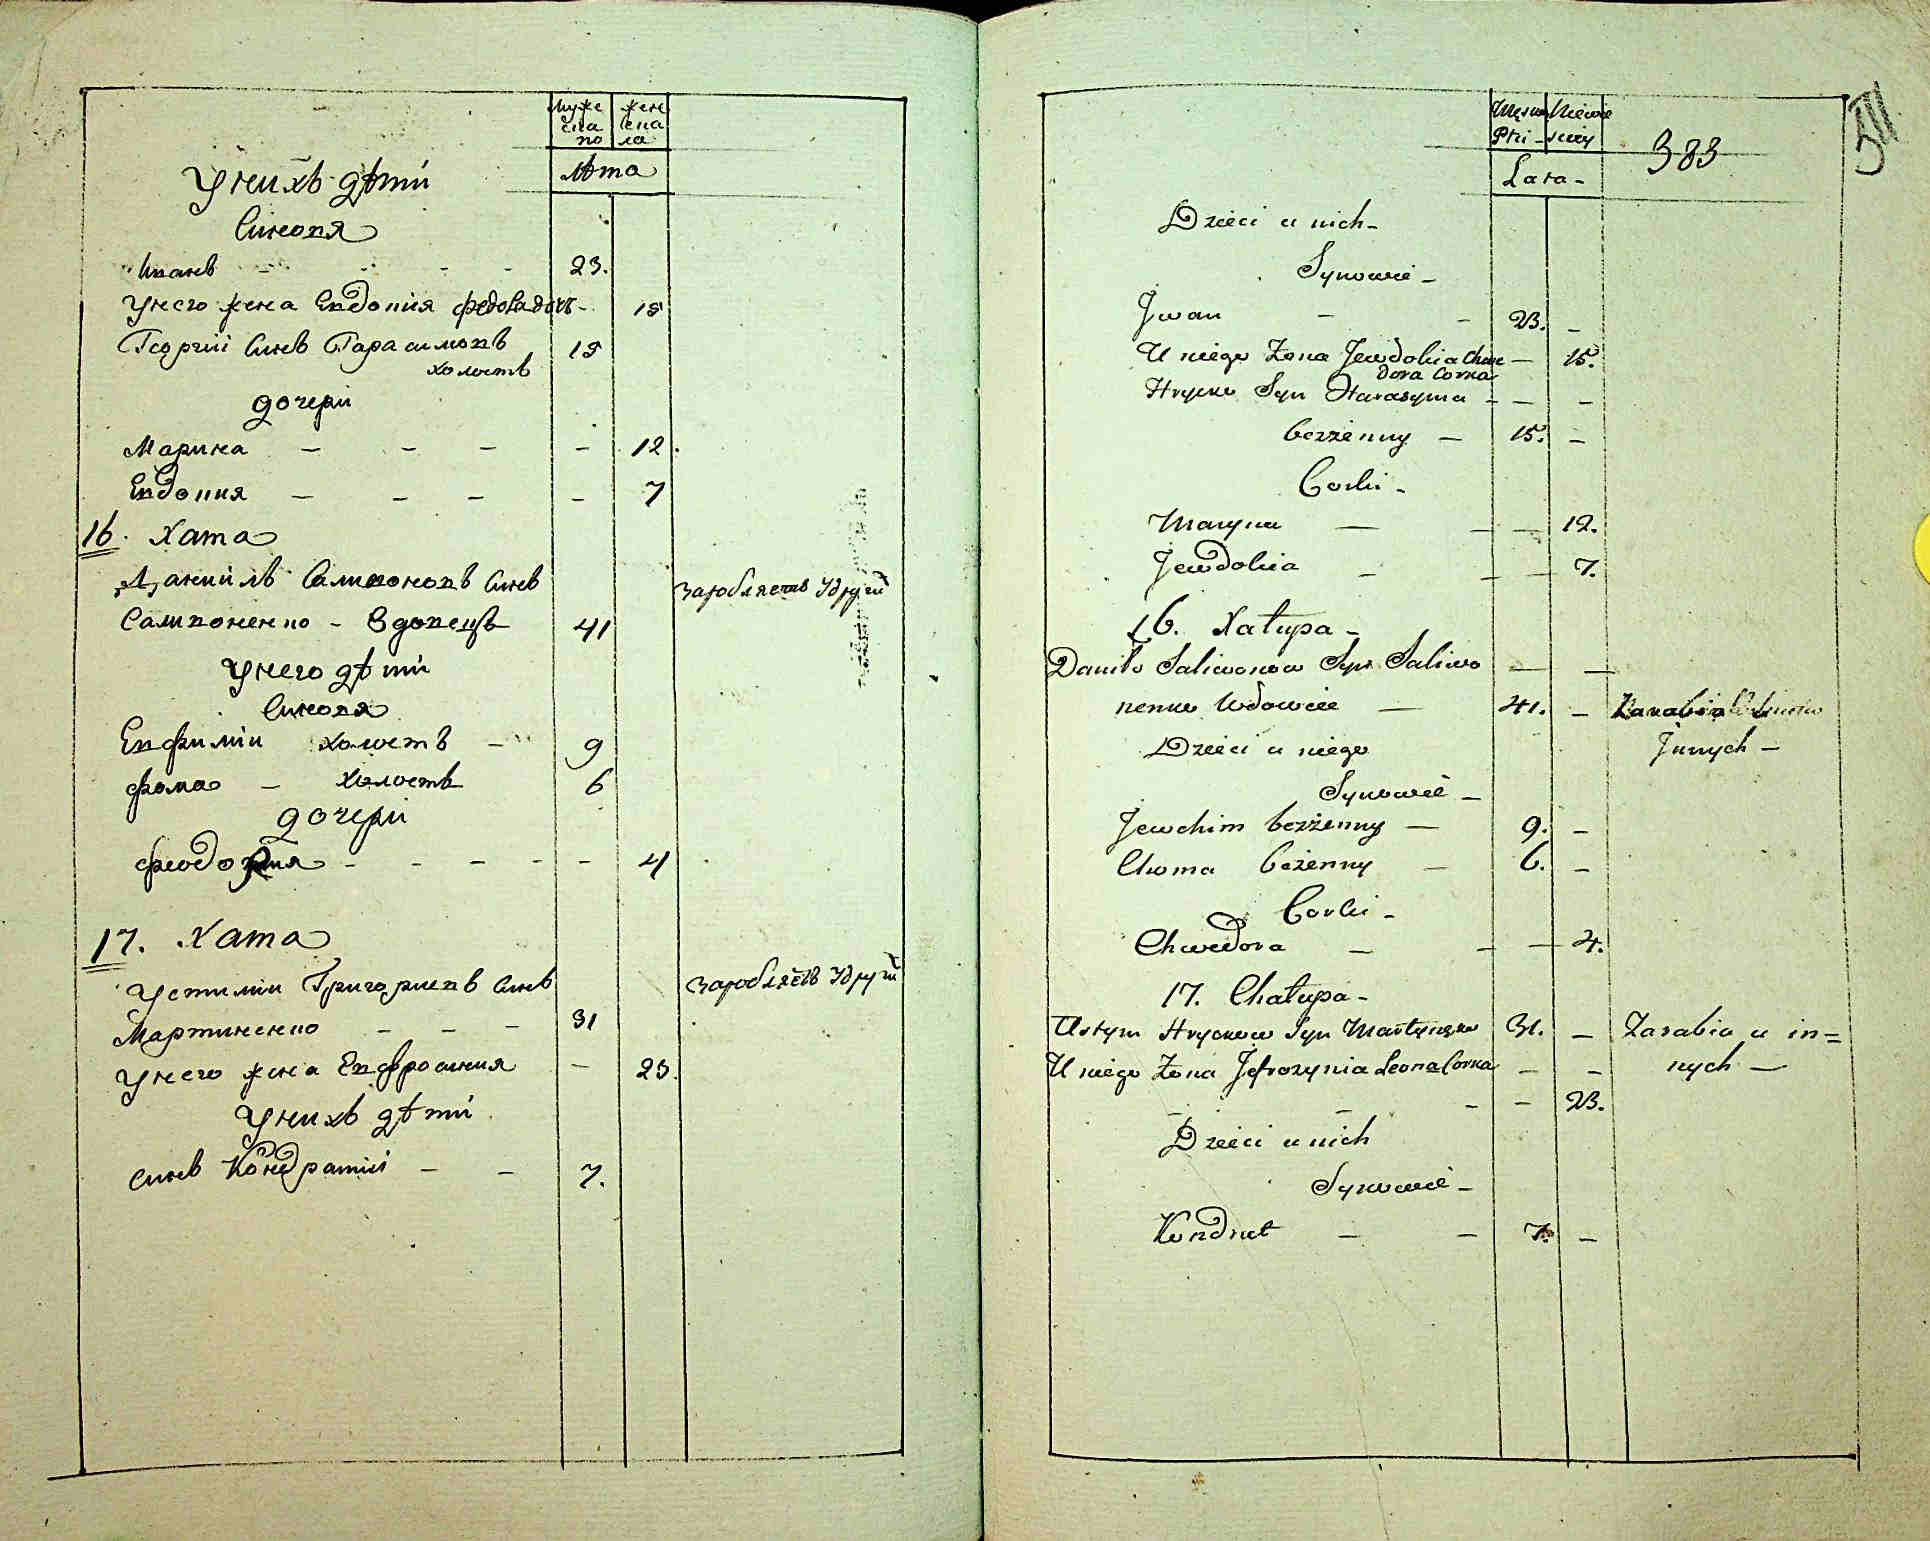 муже
ска
по
жен
ска
ла
лѣта
Унихъ дѣти
Синовя
Иванъ - - - 23.
Унего жена Евдокия Федова дочъ - 15
Георгии Синъ Гарасимовъ 15
холостъ
дочери
Марина - - - - 12.
Евдокия - - - - 7
16. Хата
Даниилъ Саливоновъ Синъ Заробляетъ Удругии
Саливоненко - Вдовецъ 41
Унего дѣти
Синовя
Евфимии холостъ - 9
Фома - холостъ 6
дочери
Феодория - - - - - 4
17. Хата
Устимии Григориевъ Синъ Зароблаетъ Удругй
Мартиненко - - - 31
Унего жена Евфросиния - 23.
Унихъ дѣти
Синъ Кондратии - - 7.
Męskiey
Płci -
Niewie
sciey
Lata -
383
Dzieci u nich -
Synowie -
Jwan - - 23. -
U niego Żona Jewdokia Chwe - 15.
dora Corka
Hrycko Syn Harasyma - - -
bezżenny - 15. -
Corki -
Maryna - - - 12.
Jewdokia - - - 7.
16. Xałupa -
Daniło Saliwonow Syn Saliwo - -
nenko Wdowiec - 41. - Zarabia u
Jnnych -
Dzieci u niego
Synowie -
Jewchim bezżenny - 9. -
Choma beżenny - 6. -
Corki -
Chwedora - - - 4.
17. Chałupa -
Ustym Hryckow Syn Martynenko 31. - Zarabia u in=
U niego Żona Jefrozynia Leona Corka - - nych -
- - - - 23.
Dzieci u nich
Synowie -
Kondrat - - 7. -